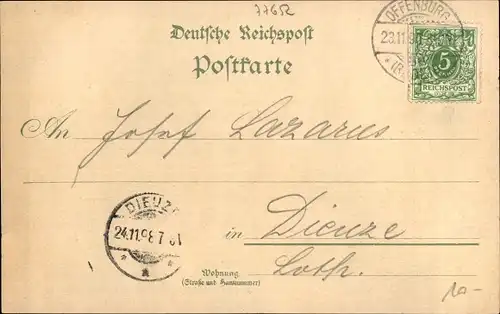 7765
OFFENBURG
23.11.9
Deutsche Reichspost
Postkarte
5
REICHSPOST
An Josef Lazarus
DIEUZE
24.11.98 7
in Dieuze
Lothr.
Wohnung
(Straße und Hausnummer)